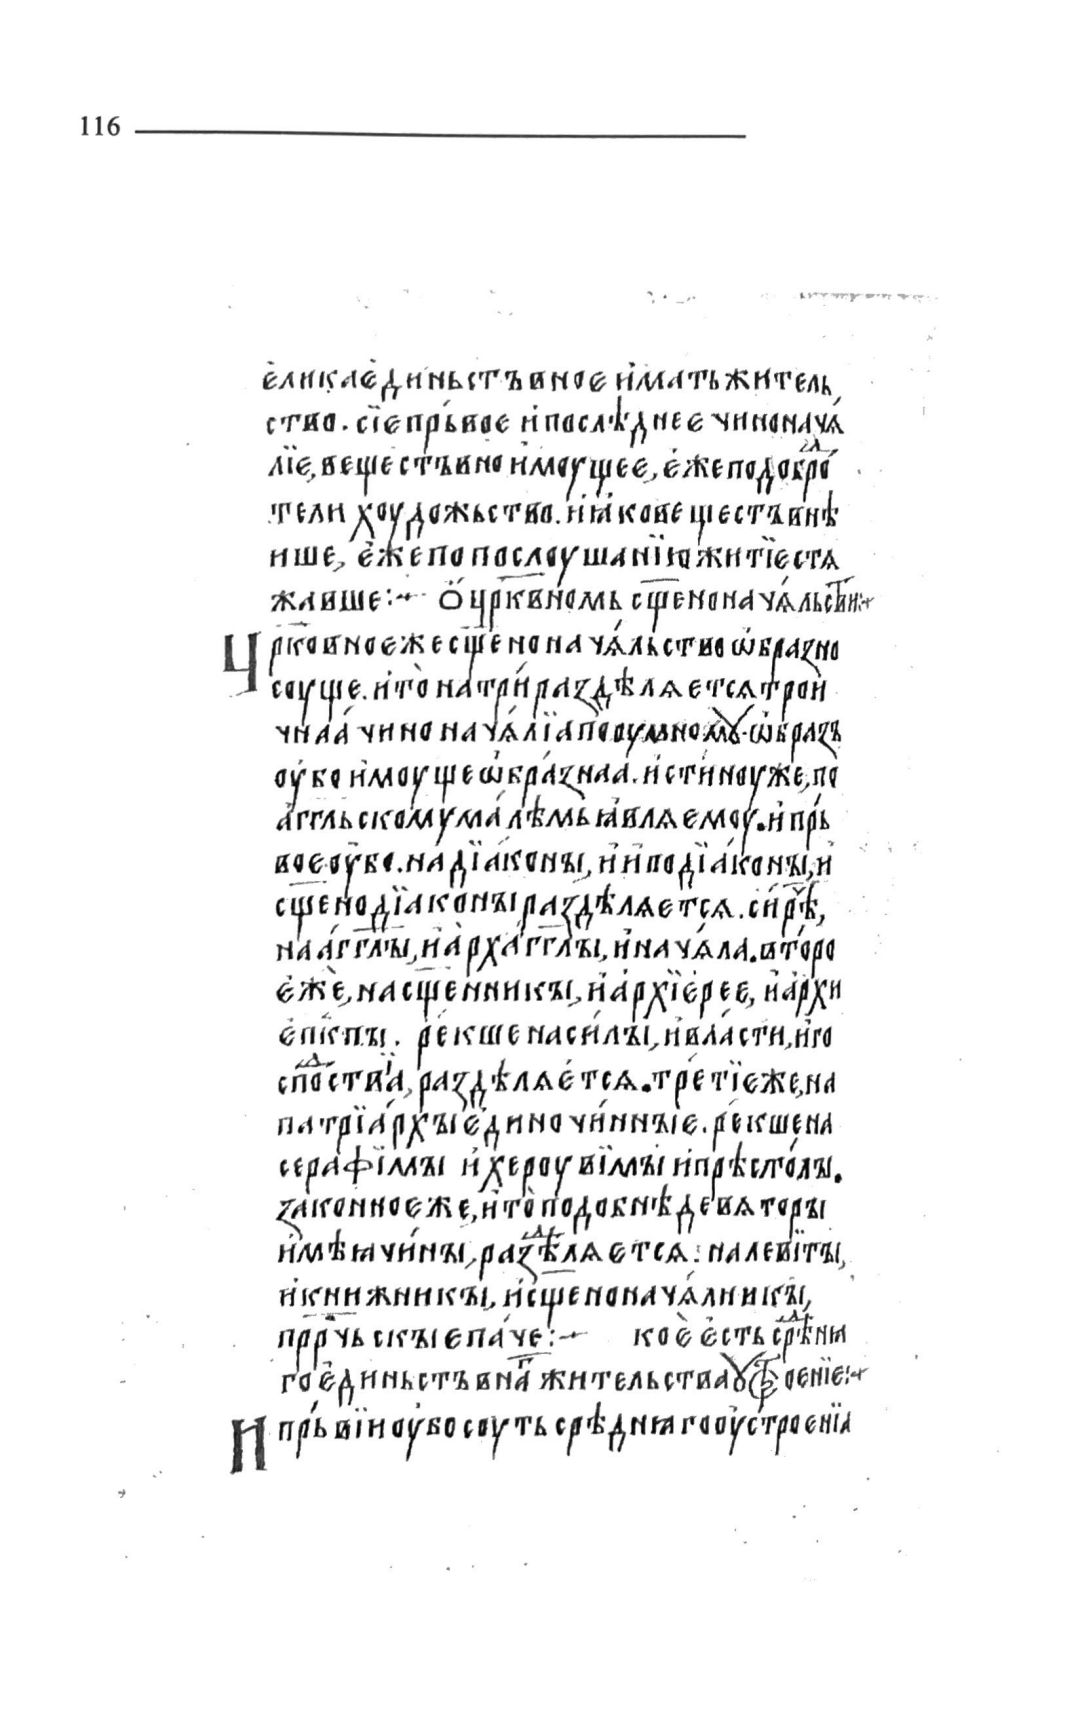 116
є҆лика є҆диньстъвное и҆мать житель
ство. сїе пръвое и҆ послѣднее чинонача́
лїе, вещестъвно и҆моущее, є҆же по добро́ⷣ
тели хоудожьство. и҆ ꙗ҆ко вещестъвнѣ
ише, є҆же по послоушанїю житїе стѧ
жавше:~ Ѻ҆ ц҃рквномь сщ҃еноначѧ́льствїи:~
Ц҃рковное же сщ҃еноначѧ́льство ѡ҆бразно
соуще. и҆ то̀ на трѝ раздѣлѧетсѧ трои
чнаа́ чиноначѧ́лїа по оумномꙋ. ѡ҆бразъ
оу҆бо и҆моуще ѡ҆бра́знаа. и҆стинноу же, по
а҆гг҃льскому ма́лѣмь ꙗ҆влѧемоу. и҆ пръ́
вое оу҆бо. на дїа́коны, и҆ и҆подїа́коны, и҆
сщ҃енодїаконы раздѣлѧетсѧ. си́рѣⷱ,
на а́гг҃лы, и҆ а҆рха́гг҃лы, и҆ начѧ́ла. вто́ро
є҆ жѐ, на сщ҃енникы, и҆ а҆рхїере́е, и҆ а҆рхи
є҆пⷭ҇кпы. ре́кше на си́лы, и҆ вла́сти, и҆ го
споⷣствїа, раздѣлѧе́тсѧ. тре́тїе же, на
патрїа́рхы є҆диночи́нныіе. ре́кше на
серафїмы и҆ хероувїмы и҆ прѣстолы.
законное же, и҆ то̀ подобнѣ девѧторы
и҆мѣꙗ чи́ны, разⷣѣлѧетсѧ: на левїты,
и҆ книжникы, и҆ сщ҃еноначѧ́лникы,
прⷪ҇рчьскые па́че:~ коѐ є҆сть срѣⷣнꙗ
го є҆диньстъвнаⷢ жительства ꙋ҆строенїе:~
И҆ пръ́вїи оу҆бо соуть срѣднꙗго оу҆строенїа